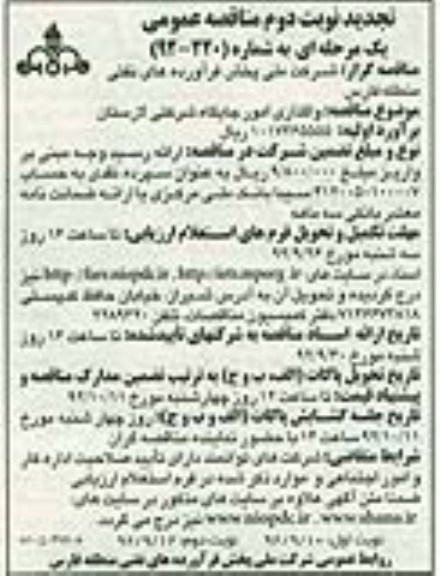 تجدید نوبت دوم مناقصه عمومی
یک مرحله ای به شماره (۲۲۰-۹۲)
مناقصه گزار: شرکت ملی پخش فرآورده های نفتی
منطقه فارس
موضوع مناقصه: واگذاری امور جایگاه شرکتی ارسنان
برآورد اولیه: ریال
نوع و مبلغ تضمین شرکت در مناقصه: ارائه رسید وجه مبنی بر
واریز مبلغ ریال به عنوان سپرده نقدی به حساب
بانک ملی مرکزی یا ارائه ضمانت نامه
معتبر بانکی سه ماهه
مهلت تکمیل و تحویل فرم های استعلام ارزیابی: تا ساعت ۱۴ روز
سه شنبه مورخ ۹۲/۹/۲۶
اسناد در سایت های http://iets.mporg.ir , http://fars.niopdc.ir نیز
درج گردیده و تحویل آن به آدرس شیراز خیابان حافظ کدپستی
دفتر کمیسیون مناقصات تلفن
تاریخ ارائه اسناد مناقصه به شرکتهای تأییدشده: تا ساعت ۱۴ روز
شنبه مورخ ۹۲/۹/۳۰
تاریخ تحویل پاکات (الف، ب و ج) به ترتیب تضمین مدارک مناقصه و
پیشنهاد قیمت: تا ساعت ۱۴ روز چهارشنبه مورخ ۹۲/۱۰/۱۱
تاریخ جلسه گشایش پاکات (الف و ب و ج): روز چهار شنبه مورخ
۹۲/۱۰/۱۱ ساعت ۱۴ با حضور نماینده مناقصه گران
شرایط متقاضی: شرکت های توانمند دارای تأیید صلاحیت اداره کار
و امور اجتماعی و موارد ذکر شده در فرم استعلام ارزیابی
ضمنا متن آگهی علاوه بر سایت های مذکور در سایت های
www.niopdc.ir , www.shana.ir نیز درج می گردد.
نوبت اول: ۹۲/۹/۱۰ نوبت دوم: ۹۲/۹/۱۲
روابط عمومی شرکت ملی پخش فرآورده های نفتی منطقه فارس